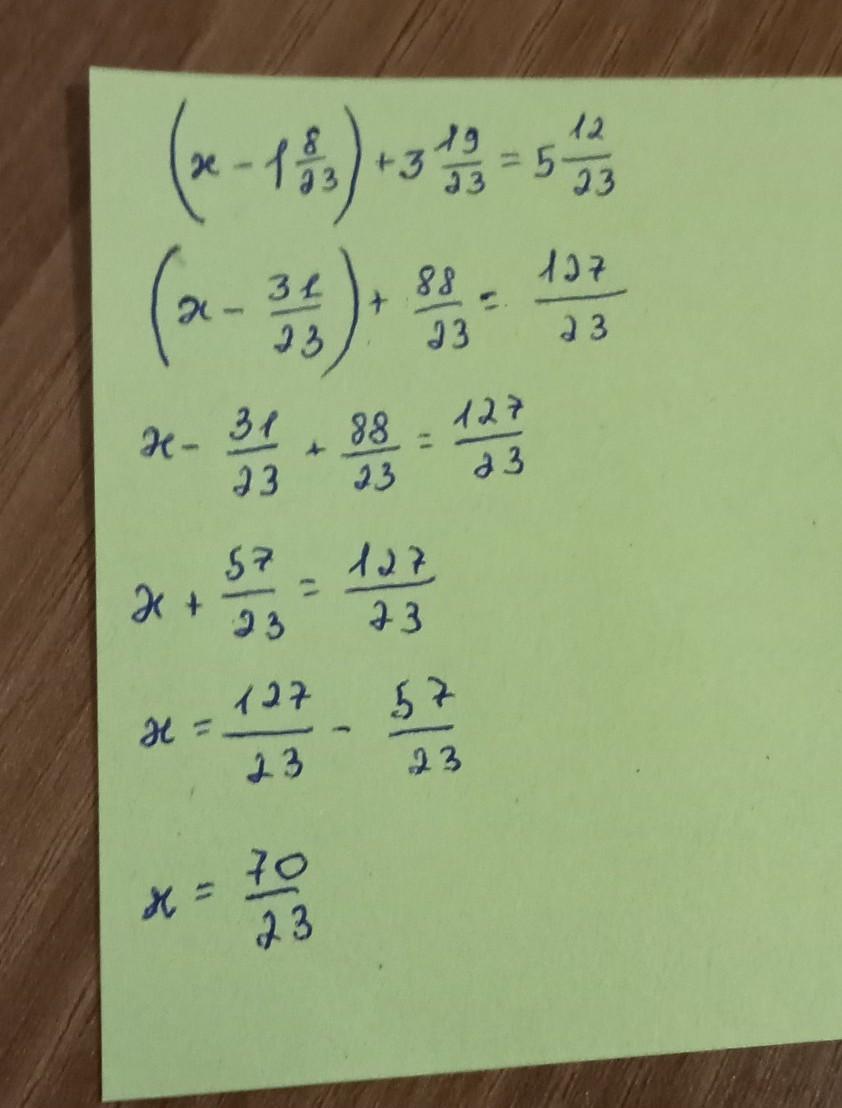 (x - 1 8/23) + 3 19/23 = 5 12/23
(x - 31/23) + 88/23 = 127/23
x - 31/23 + 88/23 = 127/23
x + 57/23 = 127/23
x = 127/23 - 57/23
x = 70/23